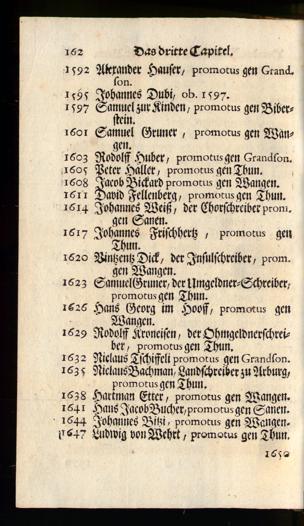 162 Das dritte Capitel.
1592 Alexander Hauser, promotus gen Grand-
son.
1595 Johannes Dubi, ob. 1597.
1597 Samuel zur Kinden, promotus gen Biber-
stein.
1601 Samuel Gruner, promotus gen Wan-
gen.
1603 Rodolff Huber, promotus gen Grandson.
1605 Peter Haller, promotus gen Thun.
1608 Jacob Bickard promotus gen Wangen.
1611 David Fellenberg, promotus gen Thun.
1614 Johannes Weiß, der Chorschreiber prom.
gen Sanen.
1617 Johannes Frischhertz, promotus gen
Thun.
1620 Vintzentz Dick, der Insulschreiber, prom.
gen Wangen.
1623 Samuel Gruner, der Umgeldner-Schreiber,
promotus gen Thun.
1626 Hans Georg im Hooff, promotus gen
Wangen.
1629 Rodolff Kroneisen, der Ohmgeldnerschrei-
ber, promotus gen Thun.
1632 Niclaus Tschiffeli promotus gen Grandson.
1635 Niclaus Bachman, Landschreiber zu Arburg,
promotus gen Thun.
1638 Hartman Etter, promotus gen Wangen.
1641 Hans Jacob Bucher, promotus gen Sanen.
1644 Johannes Bitzi, promotus gen Wangen.
1647 Ludwig von Wehrt, promotus gen Thun.
1650